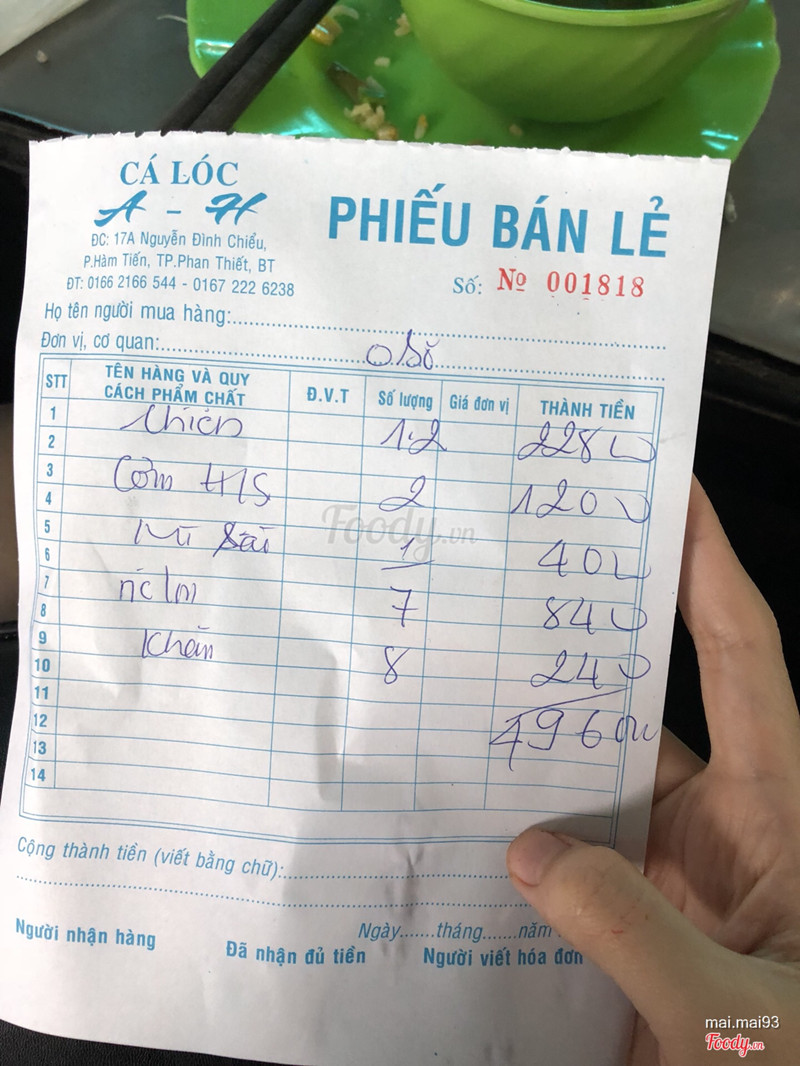 CÁ LÓC
A - H
ĐC: 17A Nguyễn Đình Chiểu,
P.Hàm Tiến, TP.Phan Thiết, BT
ĐT: 0166 2166 544 - 0167 222 6238
PHIẾU BÁN LẺ
Số: Nº 001818
Họ tên người mua hàng:
Đơn vị, cơ quan:
STT TÊN HÀNG VÀ QUY CÁCH PHẨM CHẤT Đ.V.T Số lượng Giá đơn vị THÀNH TIỀN
1 Chiên 1.2 228
2
3 Cơm HS 2 120
4
5 Mì 1 40
6
7 7 84
8
9 Khăn 8 24
10
11
12 496
13
14
Foody.vn
Cộng thành tiền (viết bằng chữ):
Ngày.......tháng.......năm
Người nhận hàng Đã nhận đủ tiền Người viết hóa đơn
mai.mai93
Foody.vn